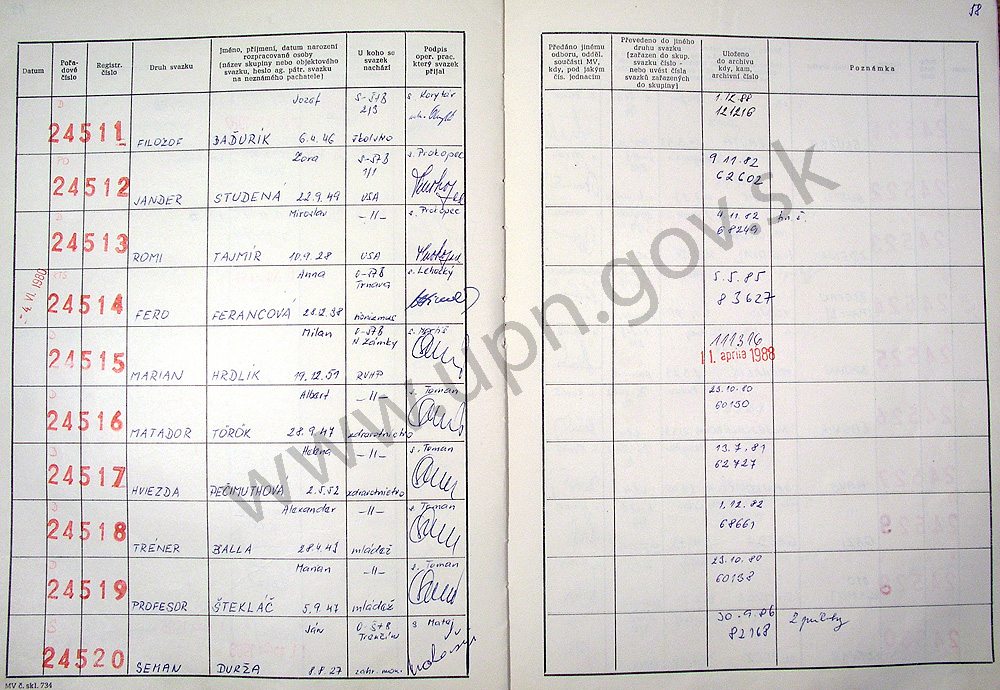 58
Datum
Pořadové číslo
Registr. číslo
Druh svazku
Jméno, příjmení, datum narození rozpracované osoby (název skupiny nebo objektového svazku, heslo ag. pátr. svazku na neznámého pachatele)
U koho se svazek nachází
Podpis oper. prac. který svazek přijal
Předáno jinému odboru, odděl. součásti MV, kdy, pod jakým čís. jednacím
Převedeno do jiného druhu svazku (zařazen do skup. svazku číslo - nebo uvést čísla svazků zařazených do skupiny)
Uloženo do archivu kdy, kam, archivní číslo
Poznámka
- 4. VI. 1980
24511 FILOZOF Jozef BAĎURÍK 6.4.46 školstvo 1.12.88 121216
24512 JANDER Zora STUDENÁ 22.9.49 1/1 USA s. Prokopec 9.11.82 62602
24513 ROMI Miroslav TAJMÍR 10.9.28 -11- USA s. Prokopec 4.11.82 68249
24514 FERO Anna FERANCOVÁ Trnava s. Lehocký 5.5.85 83627
24515 MARIAN Milan HRDLÍK 19.12.51 N. Zámky RVHP 111316 11. apríla 1988
24516 MATADOR Albert TÖRÖK 28.9.47 -11- zdravotníctvo s. Toman 23.10.80 60150
24517 HVIEZDA Helena PEČIMUTHOVÁ 2.5.52 -11- zdravotníctvo s. Toman 13.7.81 62727
24518 TRÉNER Alexander BALLA -11- mládež s. Toman 1.12.82 68661
24519 PROFESOR Marian ŠTEKLÁČ 5.9.47 -11- mládež s. Toman 23.10.80 60138
24520 SEMAN Ján DURŽA 8.8.27 Trenčín s. Mataj 30.9.86 82168
MV č. skl. 734
www.upn.gov.sk